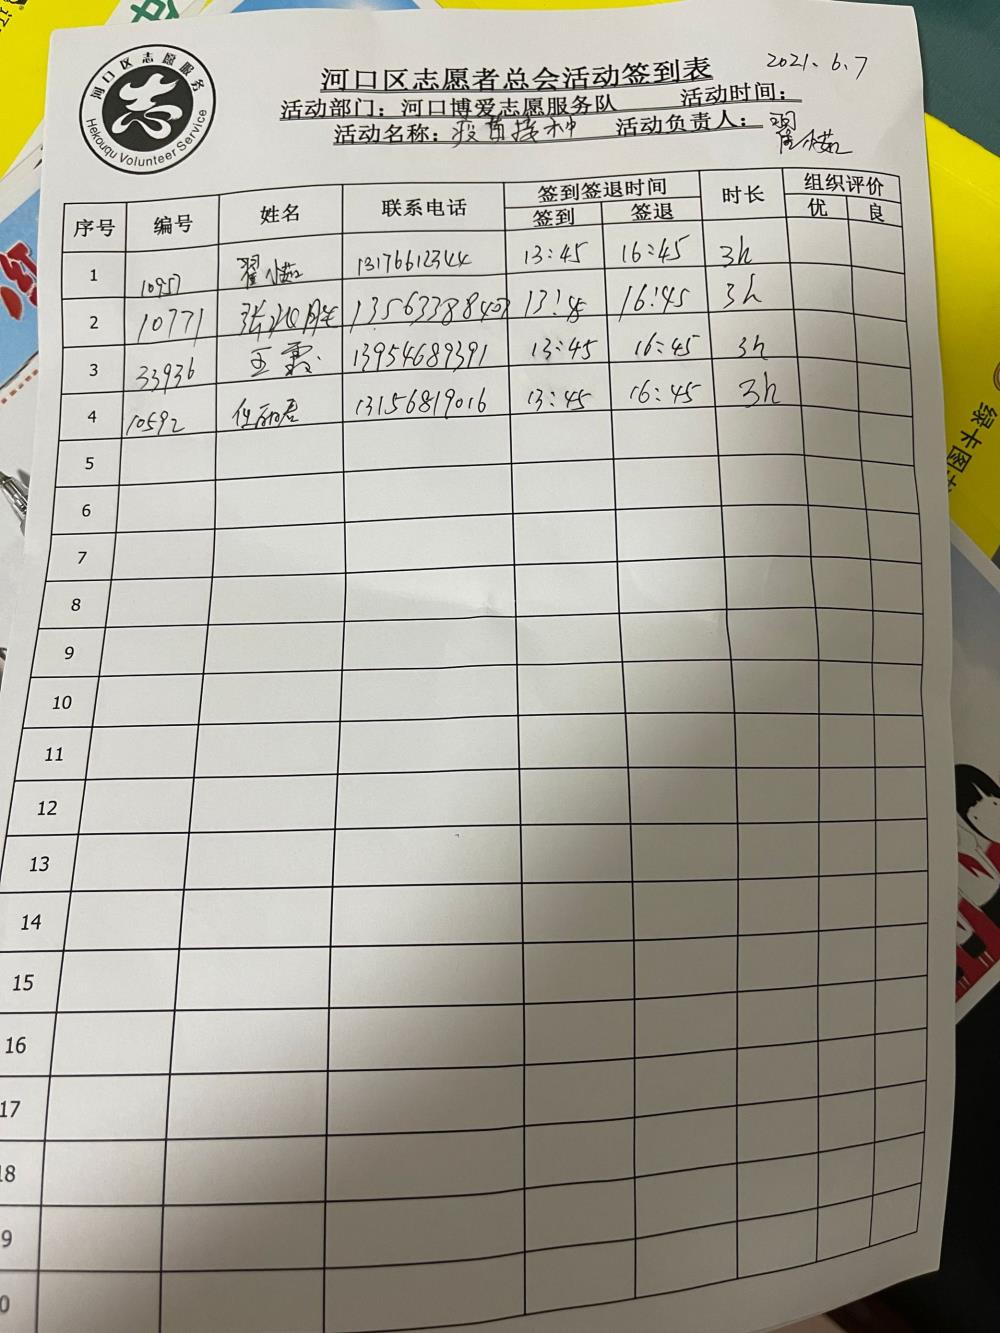 河口区志愿服务
Hekouqu Volunteer Service
河口区志愿者总会活动签到表
2021.6.7
活动部门：河口博爱志愿服务队 活动时间：
活动名称：疫苗接种 活动负责人：翟
序号 编号 姓名 联系电话 签到签退时间 时长 组织评价
签到 签退 优 良
1 10957 翟 13176612344 13:45 16:45 3h
2 10771 张 13563388407 13:45 16:45 3h
3 33936 王 13954689391 13:45 16:45 3h
4 10592 13156819016 13:45 16:45 3h
5
6
7
8
9
10
11
12
13
14
15
16
17
18
9
0
绿卡